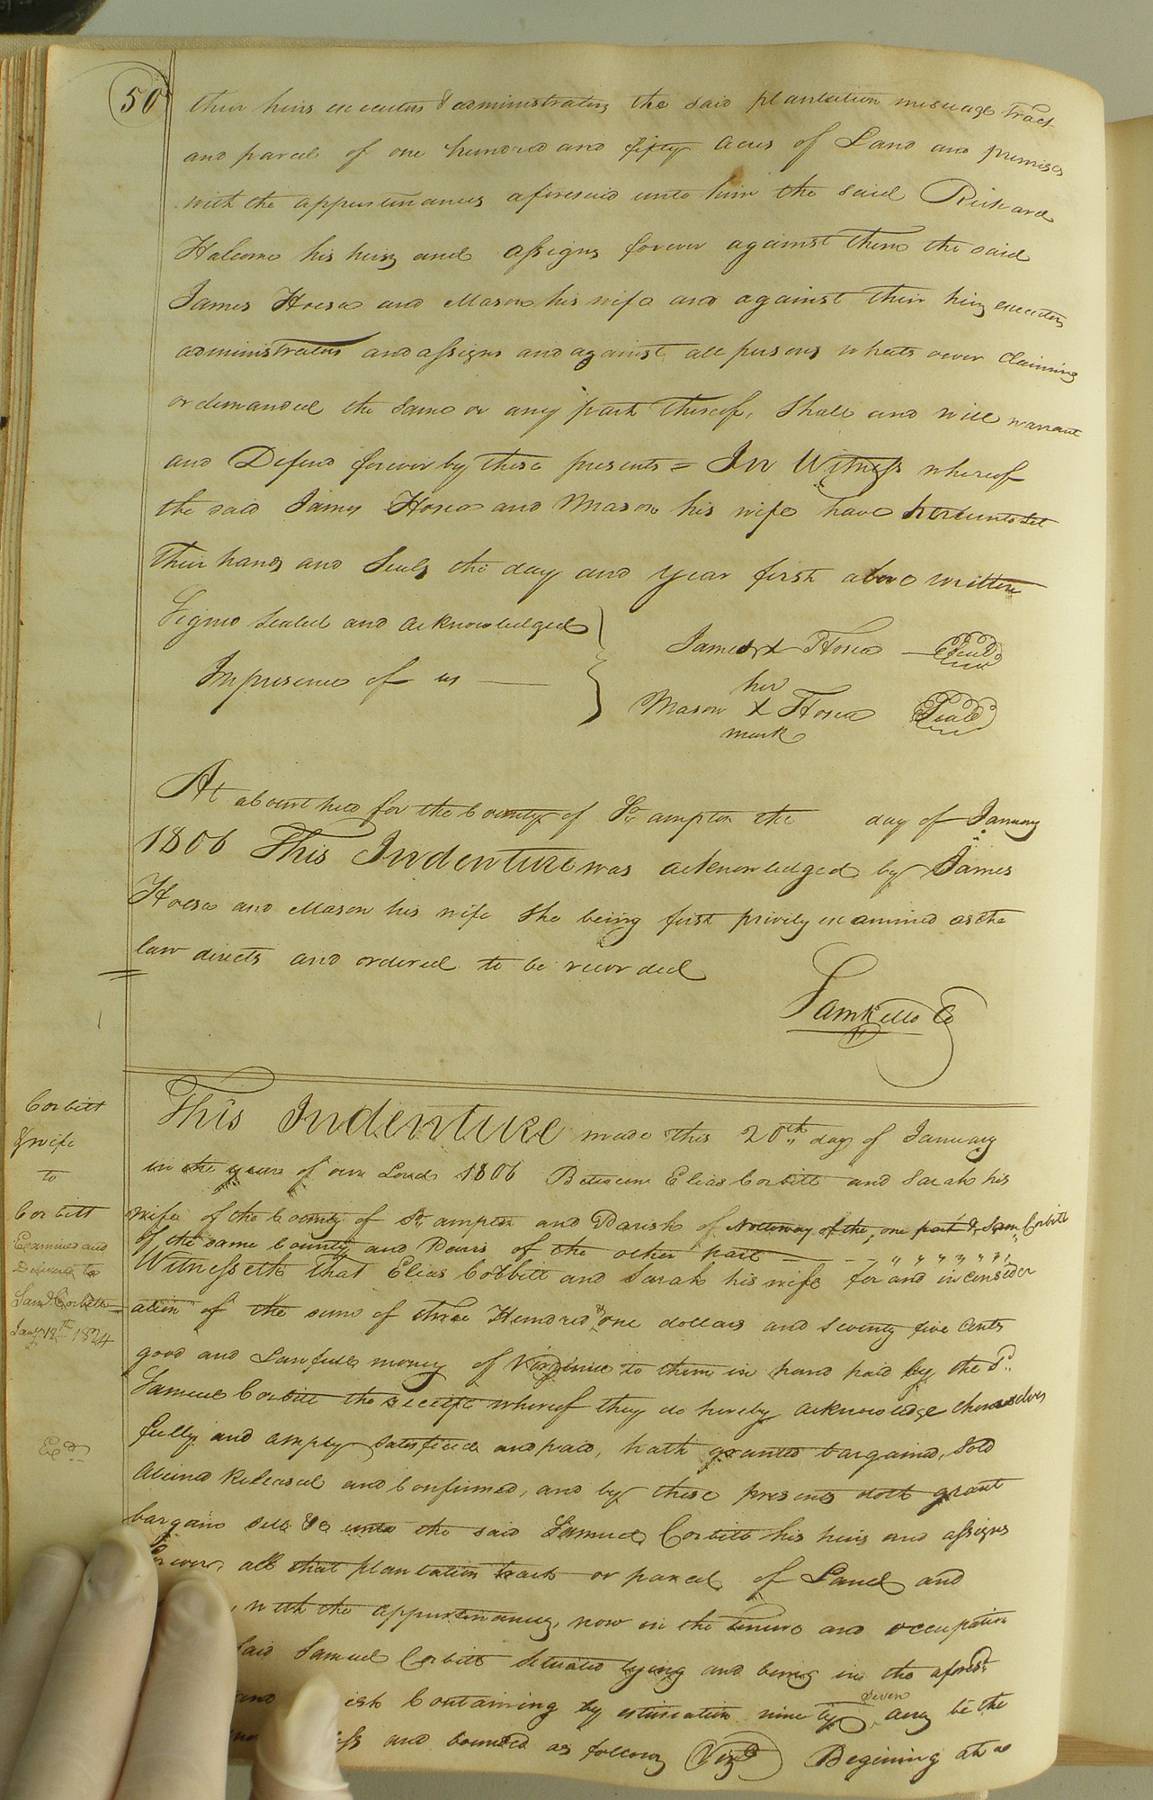 50
their heirs executors & administrators the said plantation message tract
and parcel of one hundred and fifty acres of Land and premises
with the appurtenances aforesaid unto him the said Richard
Holcome his heirs and assigns forever against them the said
James Hosea and Mason his wife and against their heirs executors
administrators and assigns and against all persons whats oever claiming
or demanded the same or any part thereof, Shall and will warrant
and Defend forever by these presents = In Witness whereof
the said James Hosea and Mason his wife have hereunto set
their hands and Seals the day and year first above written
Signed Sealed and acknowledged
In presence of us
James X Hosea Seal
her
Mason X Hosea Seal
mark
At a Court held for the County of So. ampton the day of January
1806 This Indenture was acknowledged by James
Hosea and Mason his wife She being first privily examined as the
law directs and ordered to be recorded
Sam Kello Co
Corbitt
& wife
to
Corbitt
Examined and
Delivered to
Saml. Corbitt
Jany 12th 1824
Exd.
This Indenture made this 20th day of January
in the year of our Lord 1806 Between Elias Corbitt and Sarah his
wife of the County of So. ampton and Parish of Nottoway of the, one part & Sam. Corbitt
of the same County and Paris of the other part
Witnesseth that Elias Corbitt and Sarah his wife for and in consider
ation of the sum of three Hundred & one dollars and seventy five Cents
good and Lawfull money of Virginia to them in hand paid by the Sd.
Samuel Corbitt the receipt whereof they do hereby acknowledge themselves
fully and amply satisfied and paid, hath granted bargained, Sold
aliened Released and Confirmed, and by these presents doth grant
bargain sell &c unto the said Samuel Corbitt his heirs and assigns
forever, all that plantation tract or parcel of Land and
with the appurtinances, now in the tenure and occupation
said Samuel Corbitt situated lying and being in the aforesd.
and ish Containing by estimation ninety seven acres be the
ess and bounded as follows (Vizt) Begining at a